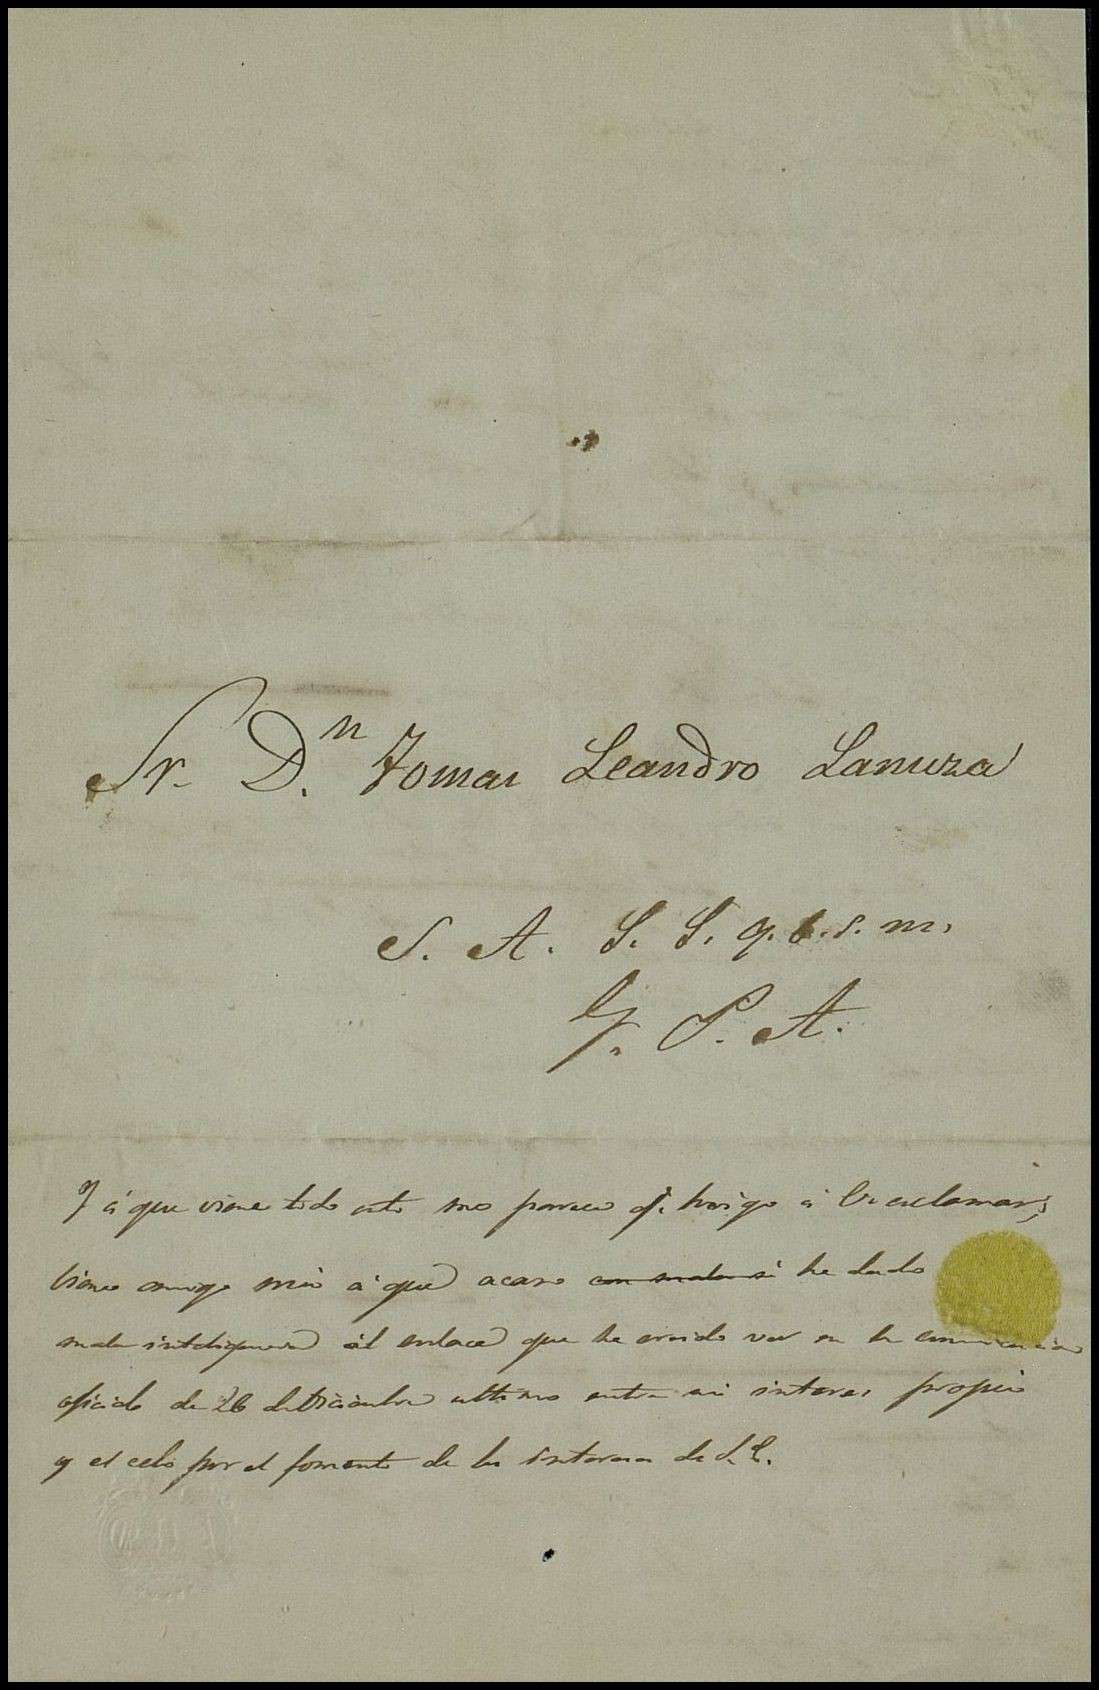 Sr. D.n Tomas Leandro Lanuza
S. A. S. S. q. b. s. m.
Y. P. A.
Y á que viene todo esto me parece q.e haigo á V. esclamar;
viene amigo mio á que acaso con mala si he dado
mala inteligencia al enlace que he creido ver en la
oficio de 26 de Diciembre ultimo entre mi interes propio
y el celo por el fomento de los intereses de S. E.